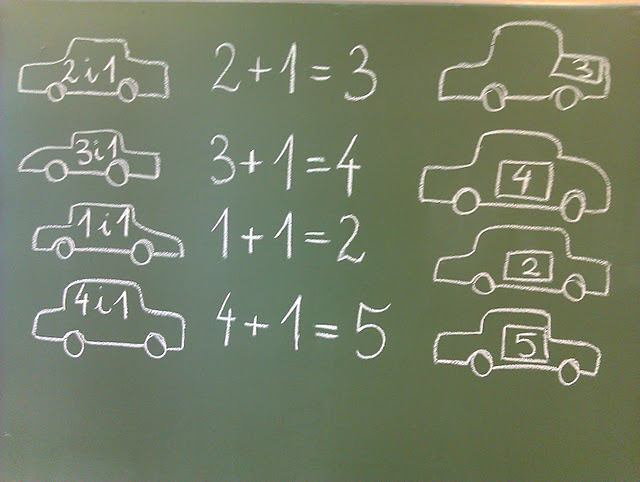 2 i 1 2 + 1 = 3 3
3 i 1 3 + 1 = 4 4
1 i 1 1 + 1 = 2 2
4 i 1 4 + 1 = 5 5